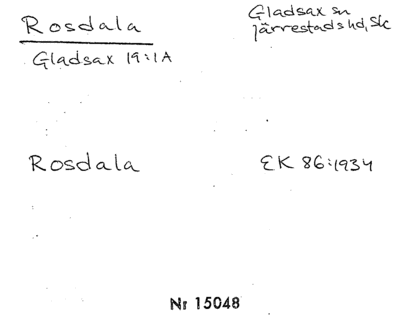 Rosdala
Gladsax sn
Järrestads hd, Sk
Gladsax 19:1A
Rosdala
EK 86:1934
Nr 15048